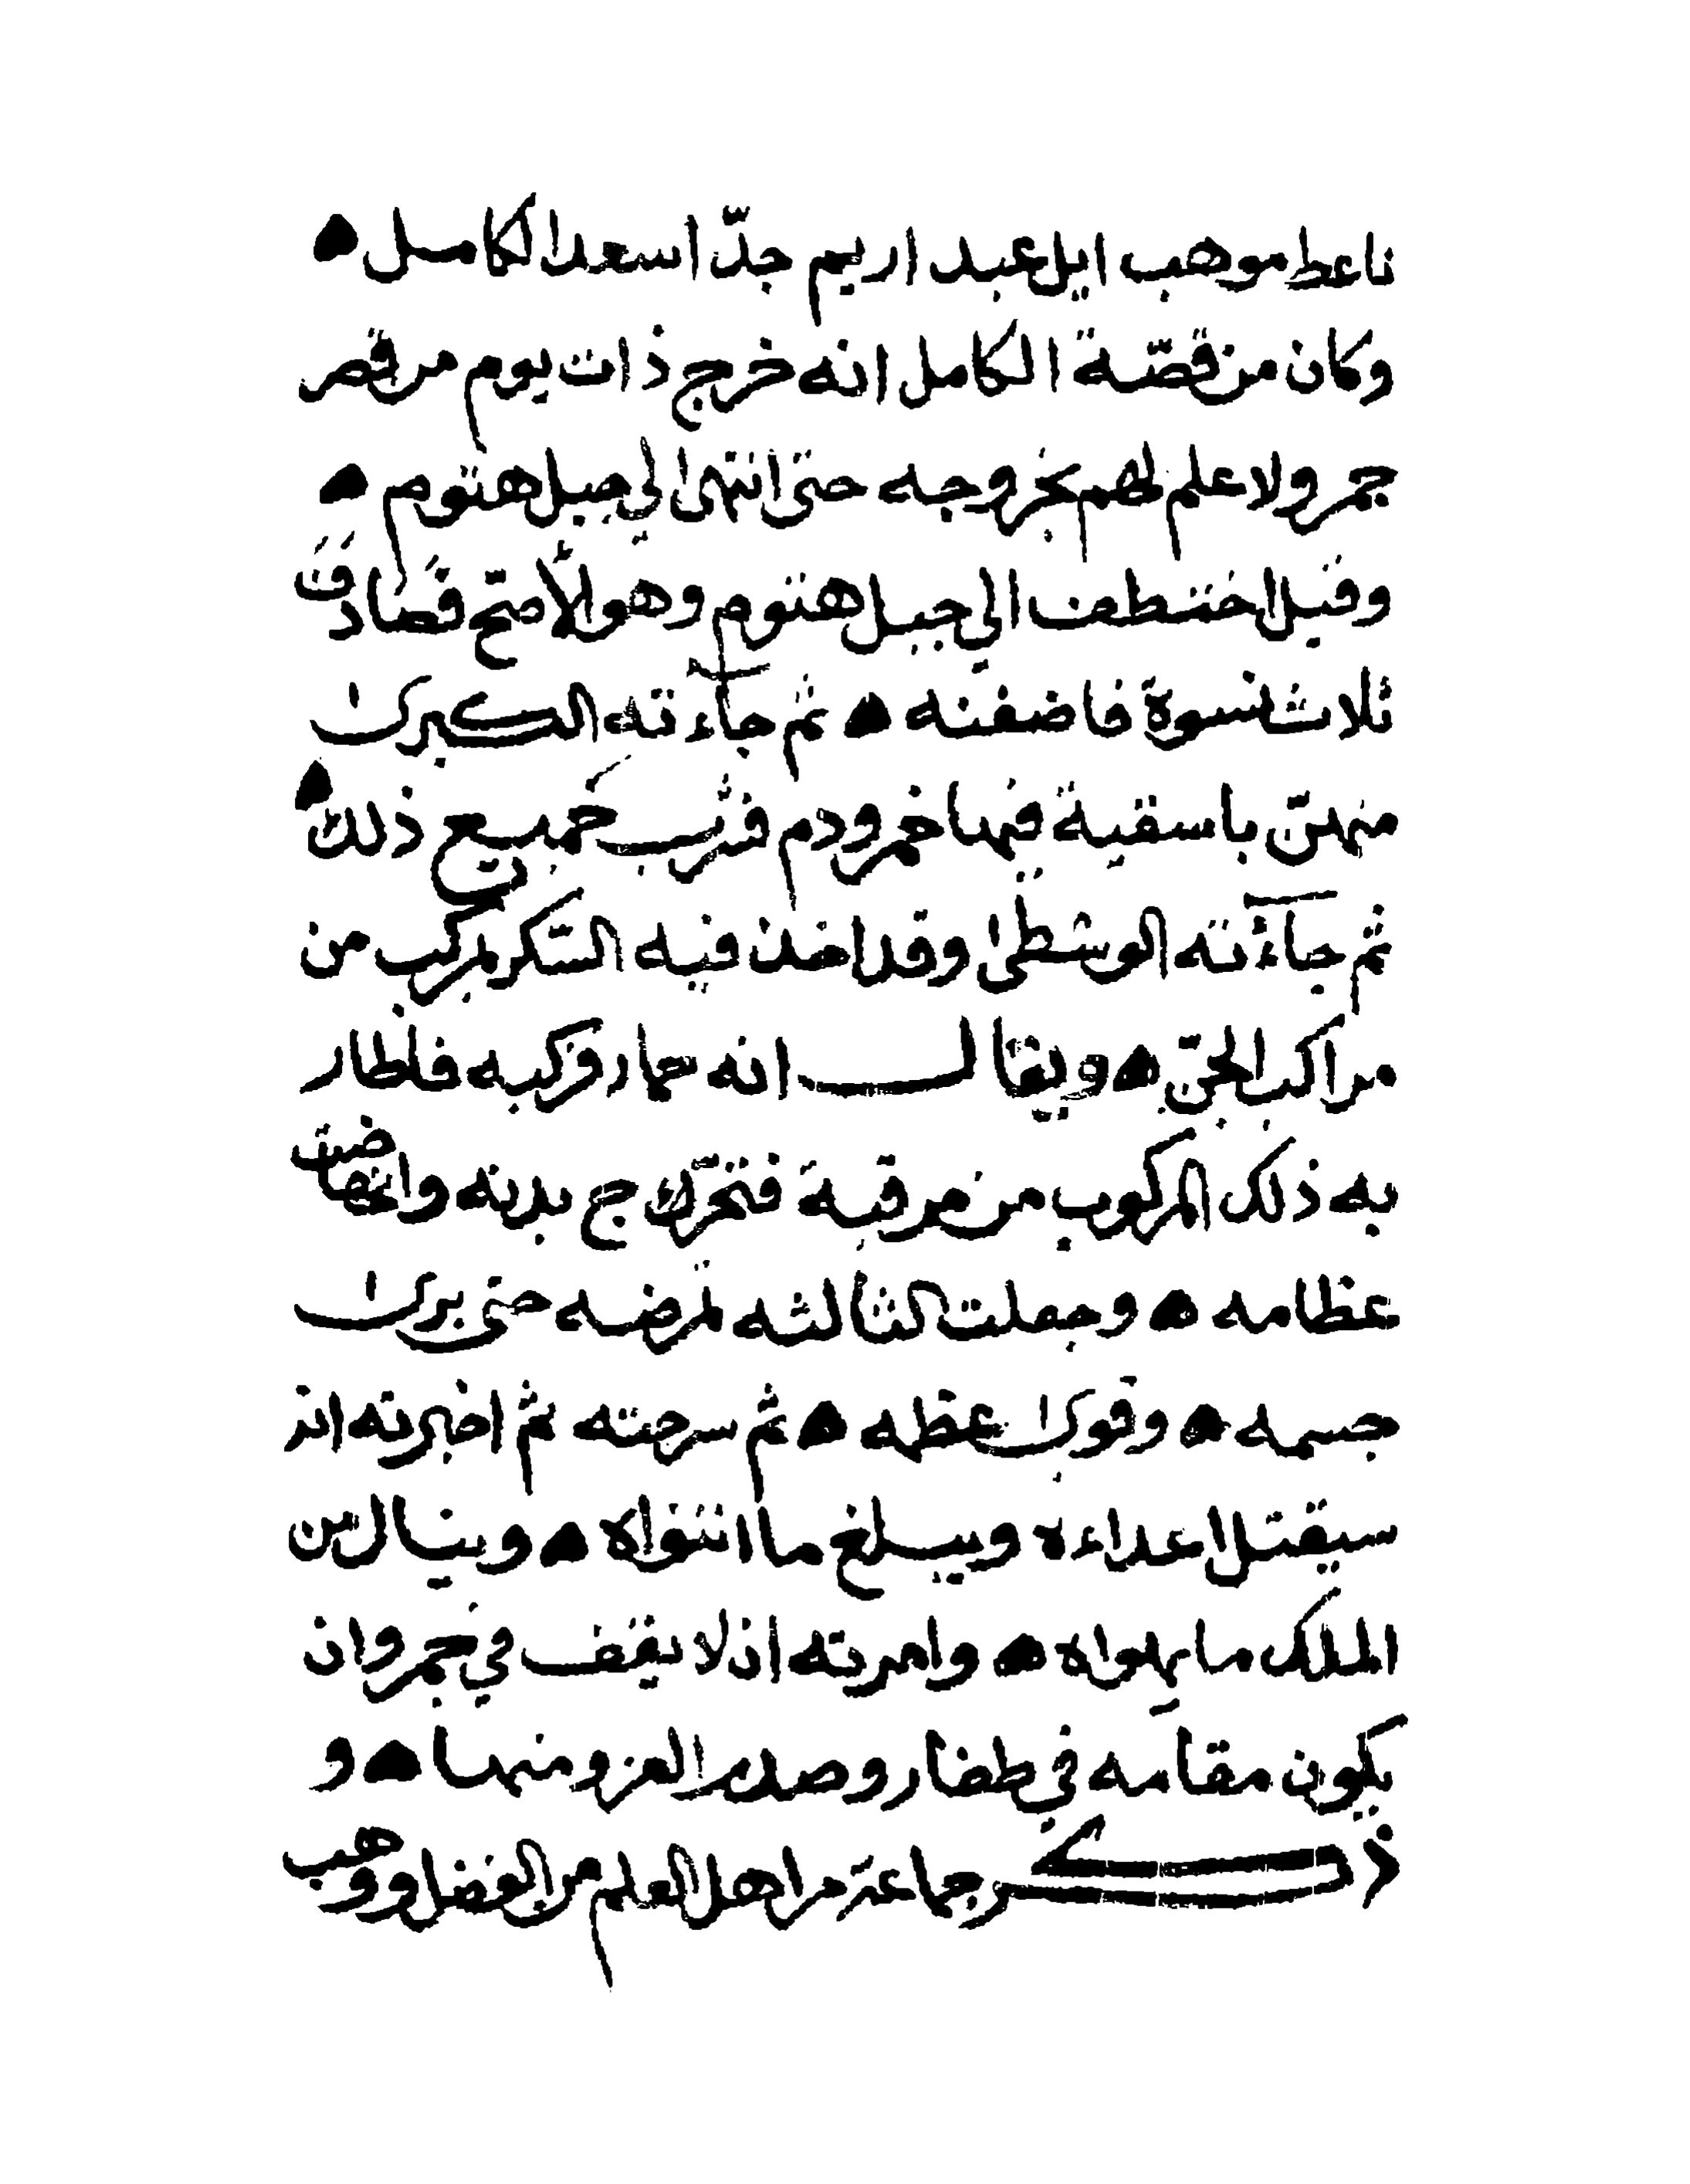 ناعط موهب ايل عبد اريم جدّ اسعد الكامل
وكان من قصّة الكامل انه خرج ذات يوم من قصر
حمر ولا علم لهم بخروجه حتى انتهى الي جبل هنوم
وقيل اختطف الي جبل هنوم وهو الأ فصادف
ثلاث نسوة فاضفنه ثم جآءته الكبرى
منهنّ باسقية فيها خمر ودم فشرب جميع ذلك
ثم جآءته الوسطى وقد اخذ فيه السكر بمركب من
مراكب الجنّ ويقال انه حمار فركبه فاطار
به ذلك المركوب من مرقبة فتحرّك ج بدنه وانهاضت
عظامه وجعلت الثالثه تمرضه حتى برى
جسمه وقوى عظمه ثم سرحته ثم اخبرته انه
سيقتل اعداءه ويبلغ ما انتواه وينال من
الملك ما يهواه وامرته ان لا يقف في حمر وان
يكون مقامه في ظفار وصدر العزو منها و
ذكر جماعة من اهل العلم من الفضل ووهب